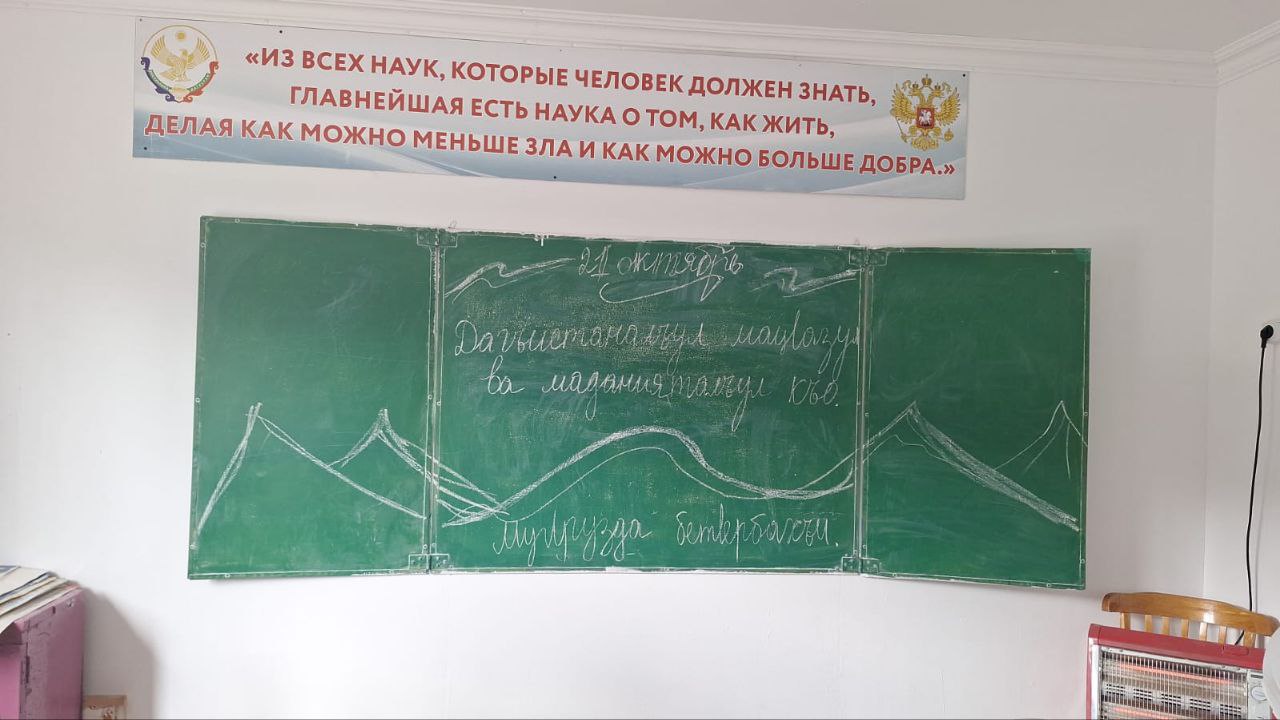 «ИЗ ВСЕХ НАУК, КОТОРЫЕ ЧЕЛОВЕК ДОЛЖЕН ЗНАТЬ,
ГЛАВНЕЙШАЯ ЕСТЬ НАУКА О ТОМ, КАК ЖИТЬ,
ДЕЛАЯ КАК МОЖНО МЕНЬШЕ ЗЛА И КАК МОЖНО БОЛЬШЕ ДОБРА.»
21 октябрь
Дагъистаналъул мацӀазул
ва маданияталъул къо.
МугӀрузда бетӀербахъи.